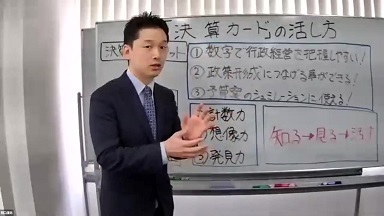 決算カードの活し方
決算
ット
①数字で行政経営で把握しやすい!
②政策形成につなげる事ができる!
③予算案のシュミレーションに使える!
計数力
想像力
③発見力
知る→見る→活す